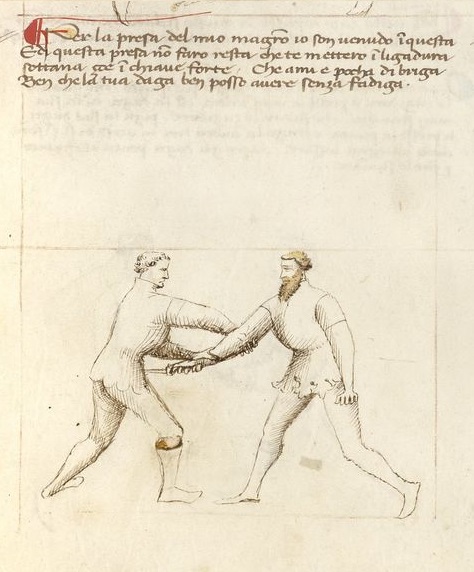 Per la presa del mio magistro io son venudo in questa
E di questa presa non farò resta che te metterò in ligadura
sottana zoè in chiave forte. Che a mi è pocha di briga
Ben che la tua daga ben posso avere senza fadiga.